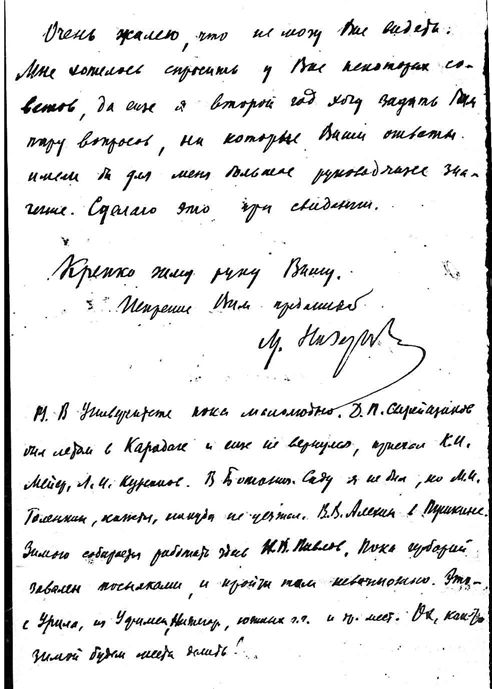 Очень жалею, что не могу Вас видеть.
Мне хотелось спросить у Вас некоторых со-
ветов, да еще я второй год хочу задать Вам
пару вопросов, на которые Ваши ответы
имели бы для меня большое руководящее зна-
чение. Сделаю это при свидании.
Крепко жму руку Вашу.
Искренне Вам преданный
М.
В Университете пока малолюдно. Д.П. Сырейщиков
был летом в Карадаге и еще не вернулся, приехал К.И.
Мейер, Л.И. Курсанов. В Ботанич. Саду я не был, но М.И.
Голенкин, кажется, никуда не уезжал. В.В. Алехин в Пушкине.
Зимой собирается работать здесь Н.В. Павлов. Пока гербарий
завален посылками, и пройти там невозможно. Это -
с Урала, из южных и пр. мест. Ох, как-то
зимой будем места делить!